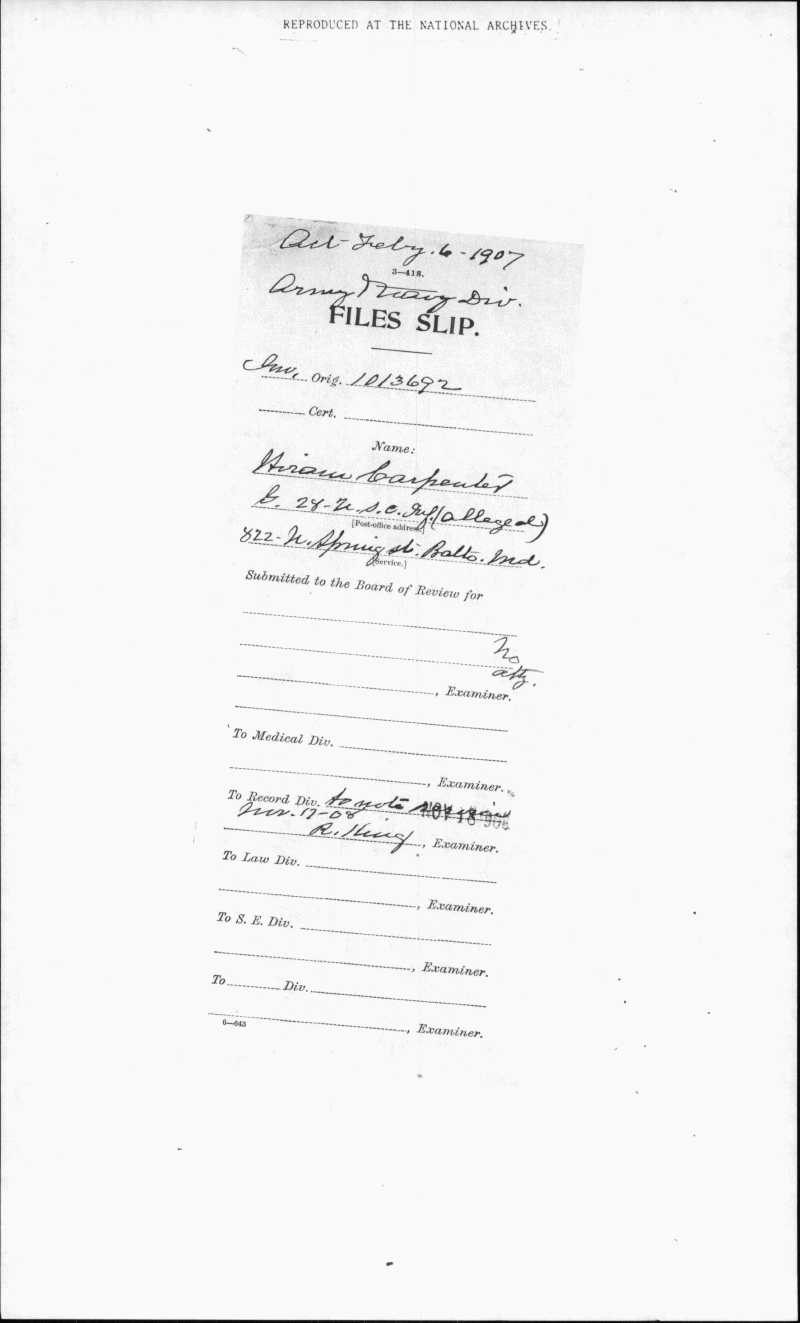 REPRODUCED AT THE NATIONAL ARCHIVES.
Act Feby. 6 - 1907
3—418.
Army & Navy Div.
FILES SLIP.
Inv. Orig. 1013692
Cert.
Name:
Hiram Carpenter
G. 28 - U.S.C. Inf. (alleged)
[Post-office address.]
822 - N. Spring st. Balto. Md.
[Service.]
Submitted to the Board of Review for
No
atty.
, Examiner.
To Medical Div.
, Examiner.
To Record Div. to note
NOV 18
Nov. 17-08
R. King, Examiner.
To Law Div.
, Examiner.
To S. E. Div.
, Examiner.
To Div.
, Examiner.
6—643